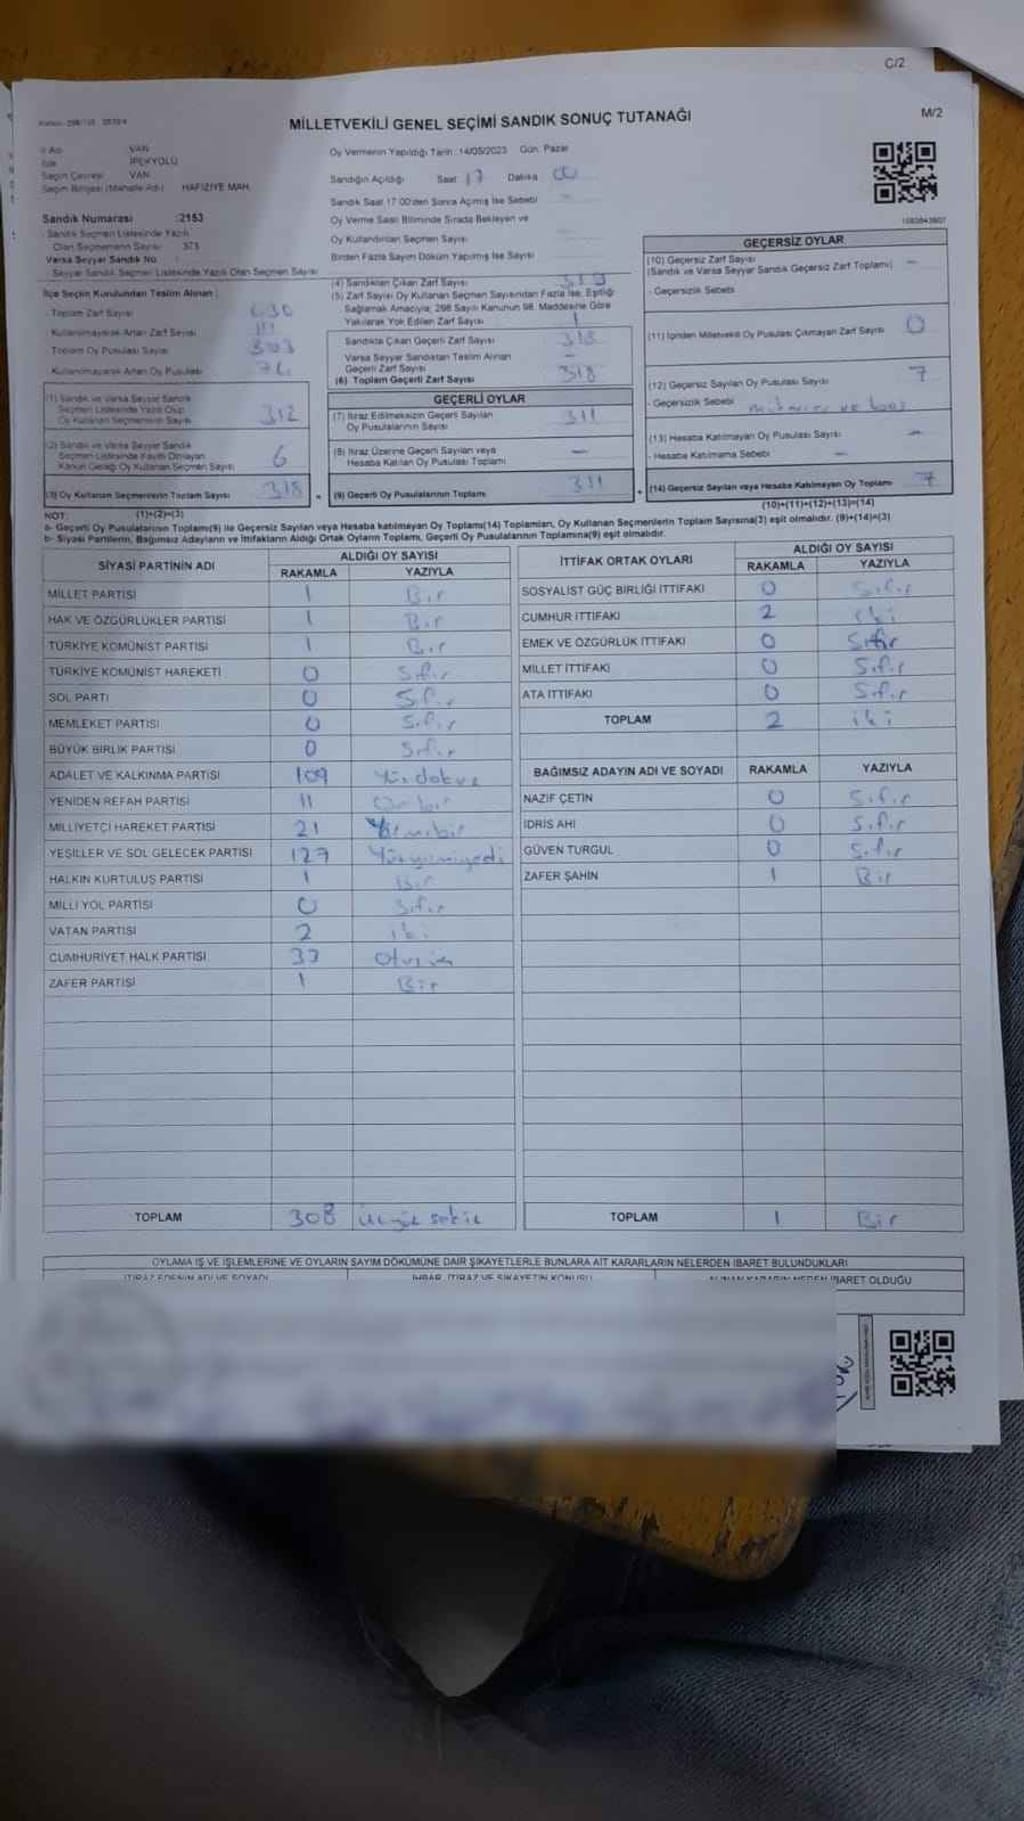 C/2
M/2
MİLLETVEKİLİ GENEL SEÇİMİ SANDIK SONUÇ TUTANAĞI
İl Adı VAN
İlçe İPEKYOLU
Seçim Çevresi VAN
Seçim Bölgesi (Mahalle Adı) HAFIZIYE MAH.
Sandık Numarası :2153
Sandık Seçmen Listesinde Yazılı
Olan Seçmenlerin Sayısı 373
Varsa Seyyar Sandık No
Seyyar Sandık Seçmen Listesinde Yazılı Olan Seçmen Sayısı
Oy Vermenin Yapıldığı Tarih :14/05/2023 Gün: Pazar
Sandığın Açıldığı Saat 17 Dakika 00
Sandık Saat 17:00'den Sonra Açılmış İse Sebebi
Oy Verme Saati Bitiminde Sırada Bekleyen ve
Oy Kullandırılan Seçmen Sayısı
Birden Fazla Sayım Döküm Yapılmış İse Sayısı
İlçe Seçim Kurulundan Teslim Alınan
Toplam Zarf Sayısı
Kullanılmayarak Artan Zarf Sayısı
Toplam Oy Pusulası Sayısı
Kullanılmayarak Artan Oy Pusulası
(1) Sandık ve Varsa Seyyar Sandık
Seçmen Listesinde Yazılı Olup
Oy Kullanan Seçmenlerin Sayısı 312
(2) Sandık ve Varsa Seyyar Sandık
Seçmen Listesinde Kaydı Olmayan
Kanun Gereği Oy Kullanan Seçmen Sayısı 6
(3) Oy Kullanan Seçmenlerin Toplam Sayısı 318
(4) Sandıktan Çıkan Zarf Sayısı 319
(5) Zarf Sayısı Oy Kullanan Seçmen Sayısından Fazla İse, Eşitliği
Sağlamak Amacıyla; 298 Sayılı Kanunun 98. Maddesine Göre
Yakılarak Yok Edilen Zarf Sayısı 1
Sandıkta Çıkan Geçerli Zarf Sayısı 318
Varsa Seyyar Sandıktan Teslim Alınan
Geçerli Zarf Sayısı –
(6) Toplam Geçerli Zarf Sayısı 318
GEÇERLİ OYLAR
(7) İtiraz Edilmeksizin Geçerli Sayılan
Oy Pusulalarının Sayısı 311
(8) İtiraz Üzerine Geçerli Sayılan veya
Hesaba Katılan Oy Pusulası Toplamı –
(9) Geçerli Oy Pusulalarının Toplamı 311
GEÇERSİZ OYLAR
(10) Geçersiz Zarf Sayısı –
(Sandık ve Varsa Seyyar Sandık Geçersiz Zarf Toplamı)
- Geçersizlik Sebebi
(11) İçinden Milletvekili Oy Pusulası Çıkmayan Zarf Sayısı 0
(12) Geçersiz Sayılan Oy Pusulası Sayısı 7
- Geçersizlik Sebebi
(13) Hesaba Katılmayan Oy Pusulası Sayısı –
- Hesaba Katılmama Sebebi –
(14) Geçersiz Sayılan veya Hesaba Katılmayan Oy Toplamı 7
NOT: (1)+(2)=(3)
(10)+(11)+(12)+(13)=(14)
a- Geçerli Oy Pusulalarının Toplamı(9) ile Geçersiz Sayılan veya Hesaba katılmayan Oy Toplamı(14) Toplamları, Oy Kullanan Seçmenlerin Toplam Sayısına(3) eşit olmalıdır. (9)+(14)=(3)
b- Siyasi Partilerin, Bağımsız Adayların ve İttifakların Aldığı Ortak Oyların Toplamı, Geçerli Oy Pusulalarının Toplamına(9) eşit olmalıdır.
SİYASİ PARTİNİN ADI ALDIĞI OY SAYISI
RAKAMLA YAZIYLA
MİLLET PARTİSİ 1 Bir
HAK VE ÖZGÜRLÜKLER PARTİSİ 1 Bir
TÜRKİYE KOMÜNİST PARTİSİ 1 Bir
TÜRKİYE KOMÜNİST HAREKETİ 0 Sıfır
SOL PARTİ 0 Sıfır
MEMLEKET PARTİSİ 0 Sıfır
BÜYÜK BİRLİK PARTİSİ 0 Sıfır
ADALET VE KALKINMA PARTİSİ 109 Yüzdokuz
YENİDEN REFAH PARTİSİ 11 Onbir
MİLLİYETÇİ HAREKET PARTİSİ 21 Yirmibir
YEŞİLLER VE SOL GELECEK PARTİSİ 127 Yüzyirmiyedi
HALKIN KURTULUŞ PARTİSİ 1 Bir
MİLLİ YOL PARTİSİ 0 Sıfır
VATAN PARTİSİ 2 iki
CUMHURİYET HALK PARTİSİ 33
ZAFER PARTİSİ 1 Bir
TOPLAM 308 üçyüz sekiz
İTTİFAK ORTAK OYLARI ALDIĞI OY SAYISI
RAKAMLA YAZIYLA
SOSYALİST GÜÇ BİRLİĞİ İTTİFAKI 0 Sıfır
CUMHUR İTTİFAKI 2 iki
EMEK VE ÖZGÜRLÜK İTTİFAKI 0 Sıfır
MİLLET İTTİFAKI 0 Sıfır
ATA İTTİFAKI 0 Sıfır
TOPLAM 2 iki
BAĞIMSIZ ADAYIN ADI VE SOYADI RAKAMLA YAZIYLA
NAZİF ÇETİN 0 Sıfır
İDRİS AHİ 0 Sıfır
GÜVEN TURGUL 0 Sıfır
ZAFER ŞAHİN 1 Bir
TOPLAM 1 Bir
OYLAMA İŞ VE İŞLEMLERİNE VE OYLARIN SAYIM DÖKÜMÜNE DAİR ŞİKAYETLERLE BUNLARA AİT KARARLARIN NELERDEN İBARET BULUNDUKLARI
İTİRAZ EDENİN ADI VE SOYADI İHBAR, İTİRAZ VE ŞİKAYETİN KONUSU ALINAN KARARIN NEDEN İBARET OLDUĞU